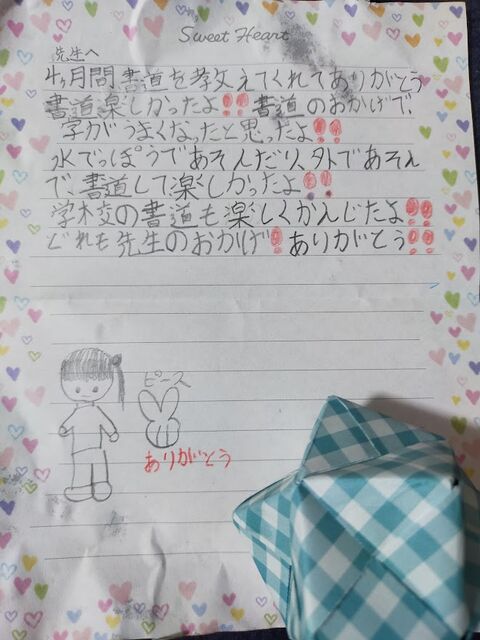 Sweet Heart
先生へ
4ヶ月間書道を教えてくれてありがとう
書道楽しかったよ!!書道のおかげで、
字がうまくなったと思ったよ!!
水でっぽうであそんだり、外であそん
で、書道して楽しかったよ!!
学校の書道も楽しくかんじたよ!!
どれも先生のおかげ!ありがとう!!
ピース
ありがとう